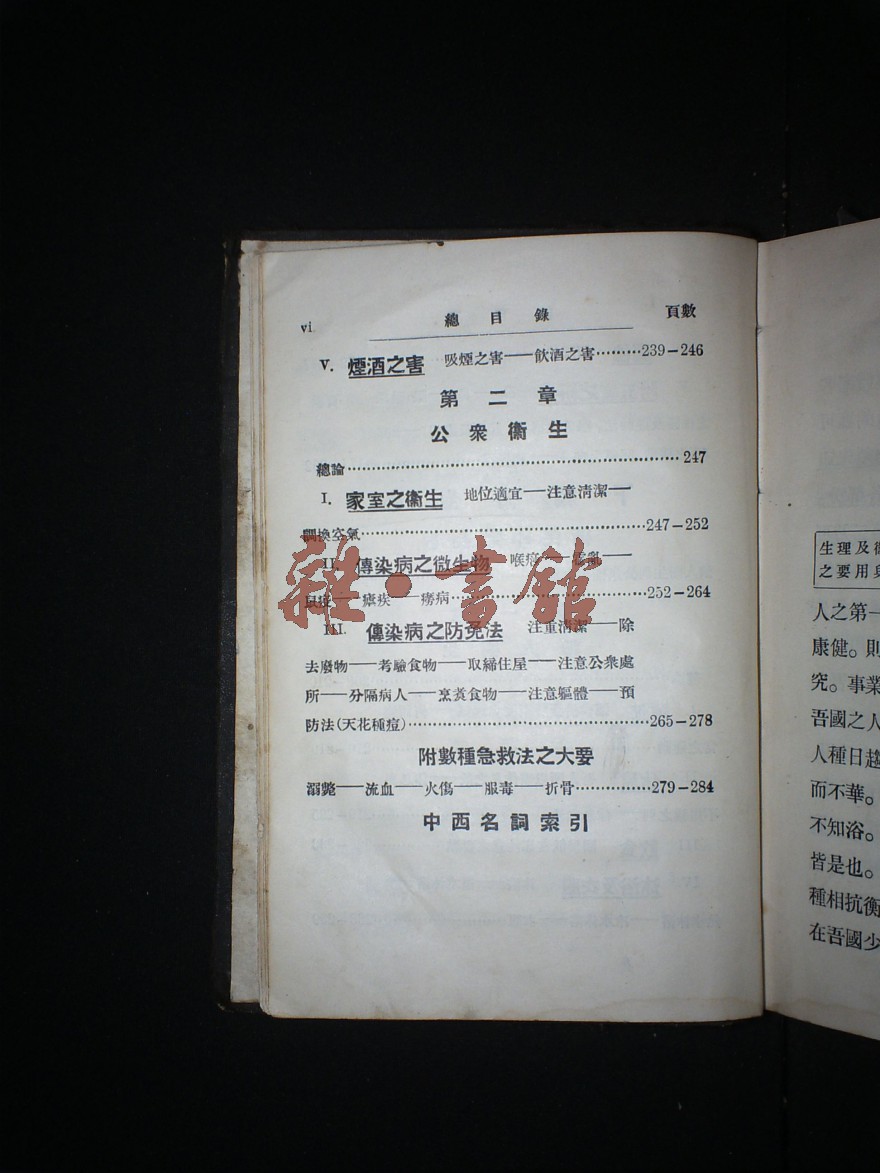 vi 總目錄 頁數
V. 煙酒之害 吸煙之害——飲酒之害………239－246
第二章
公衆衞生
總論……………………………………………………247
I. 家室之衞生 地位適宜——注意清潔——
調換空氣……………………………………………247－252
II. 傳染病之微生物 喉痧——霍亂——
鼠疫——瘧疾——癆病………………………………252－264
III. 傳染病之防免法 注重清潔——除
去廢物——考驗食物——取締住屋——注意公衆處
所——分隔病人——烹煮食物——注意軀體——預
防法(天花種痘)………………………………………265－278
附數種急救法之大要
溺斃——流血——火傷——服毒——折骨……………279－284
中西名詞索引
雜·書館
生理及衞
之要用與
人之第一
康健。則
究。事業
吾國之人
人種日趨
而不華。
不知浴。
皆是也。
種相抗衡
在吾國少